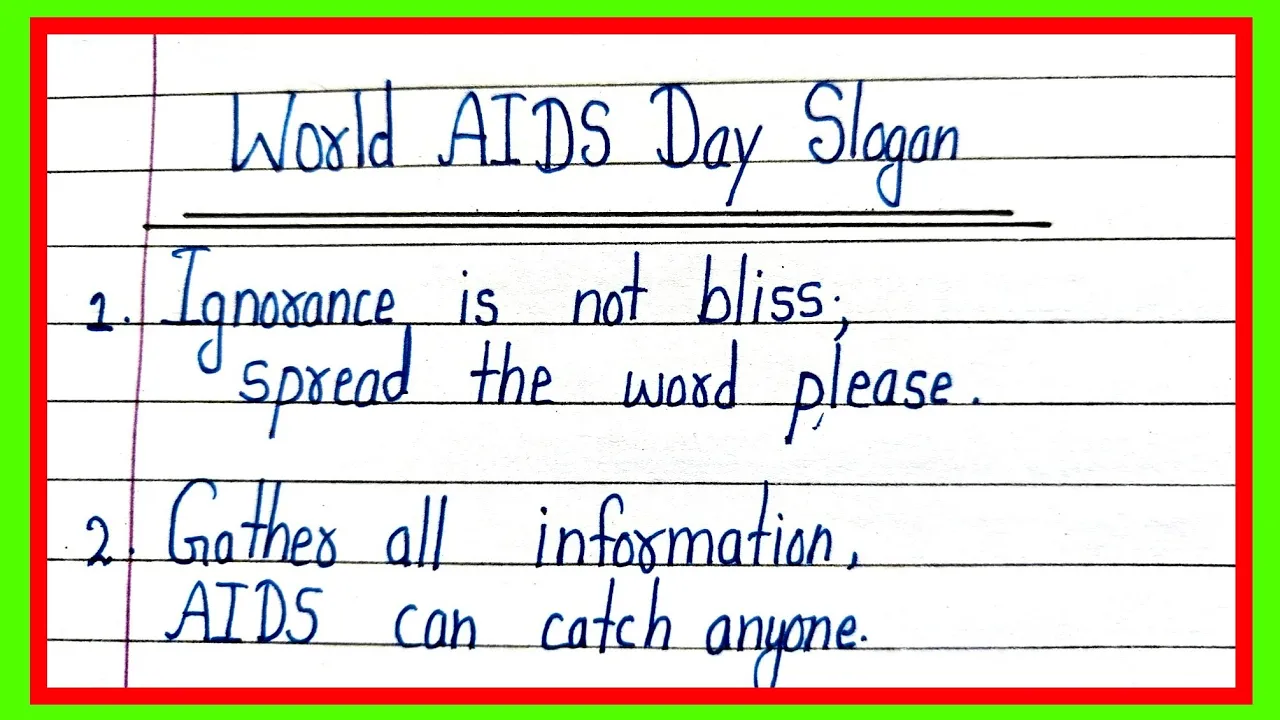 World AIDS Day Slogan
1. Ignorance is not bliss;
spread the word please.
2. Gather all information,
AIDS can catch anyone.